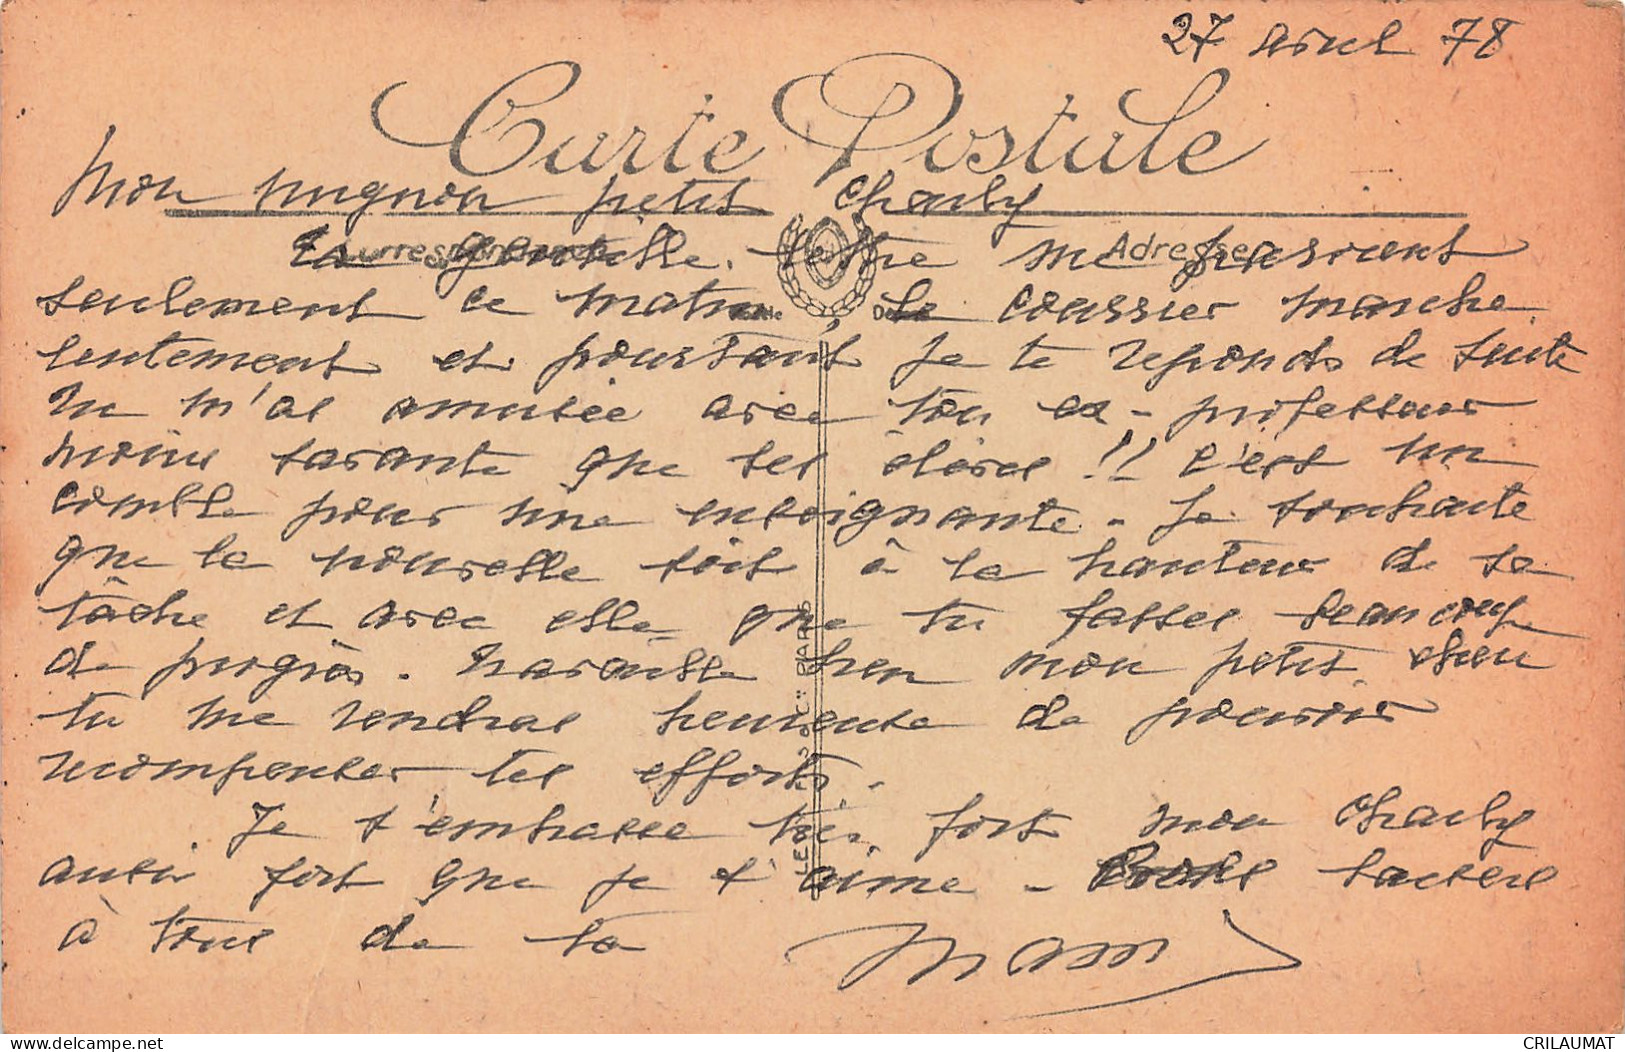 27 avril 78
Carte Postale
Mon mignon petit Charly
Correspondance
Adresse
Ta gentille lettre me parvient
seulement ce matin, le courrier marche
lentement et pourtant je te réponds de suite
Tu m'as amusée avec ton ex-professeur
moins savante que ses élèves !! C'est un
comble pour une enseignante - Je souhaite
que la nouvelle soit à la hauteur de sa
tâche et avec elle que tu fasses beaucoup
de progrès. Travaille bien mon petit chou
tu me rendras heureuse de pouvoir
récompenser tes efforts.
Je t'embrasse très fort mon Charly
aussi fort que je t'aime - baisers
à tous de ta
Mam
PARIS
www.delcampe.net
CRILAUMAT